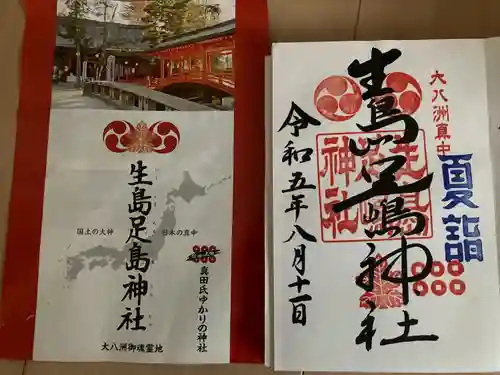 国土の大神
生島足島神社
日本の真中
真田氏ゆかりの神社
大八洲御魂霊地
大八洲真中
夏詣
生島足嶋神社
令和五年八月十一日